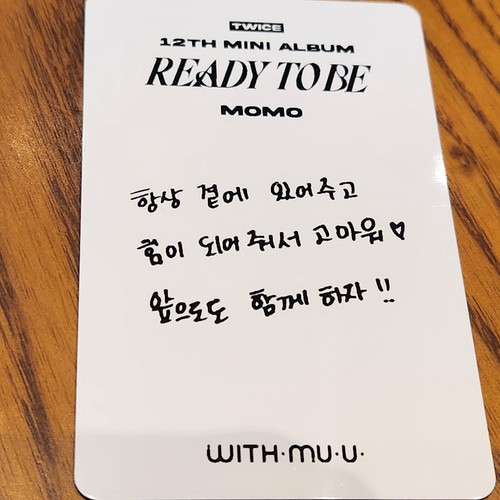 TWICE
12TH MINI ALBUM
READY TO BE
MOMO
항상 곁에 있어주고
힘이 되어 줘서 고마워♡
앞으로도 함께 하자!!
WITH·MU·U·